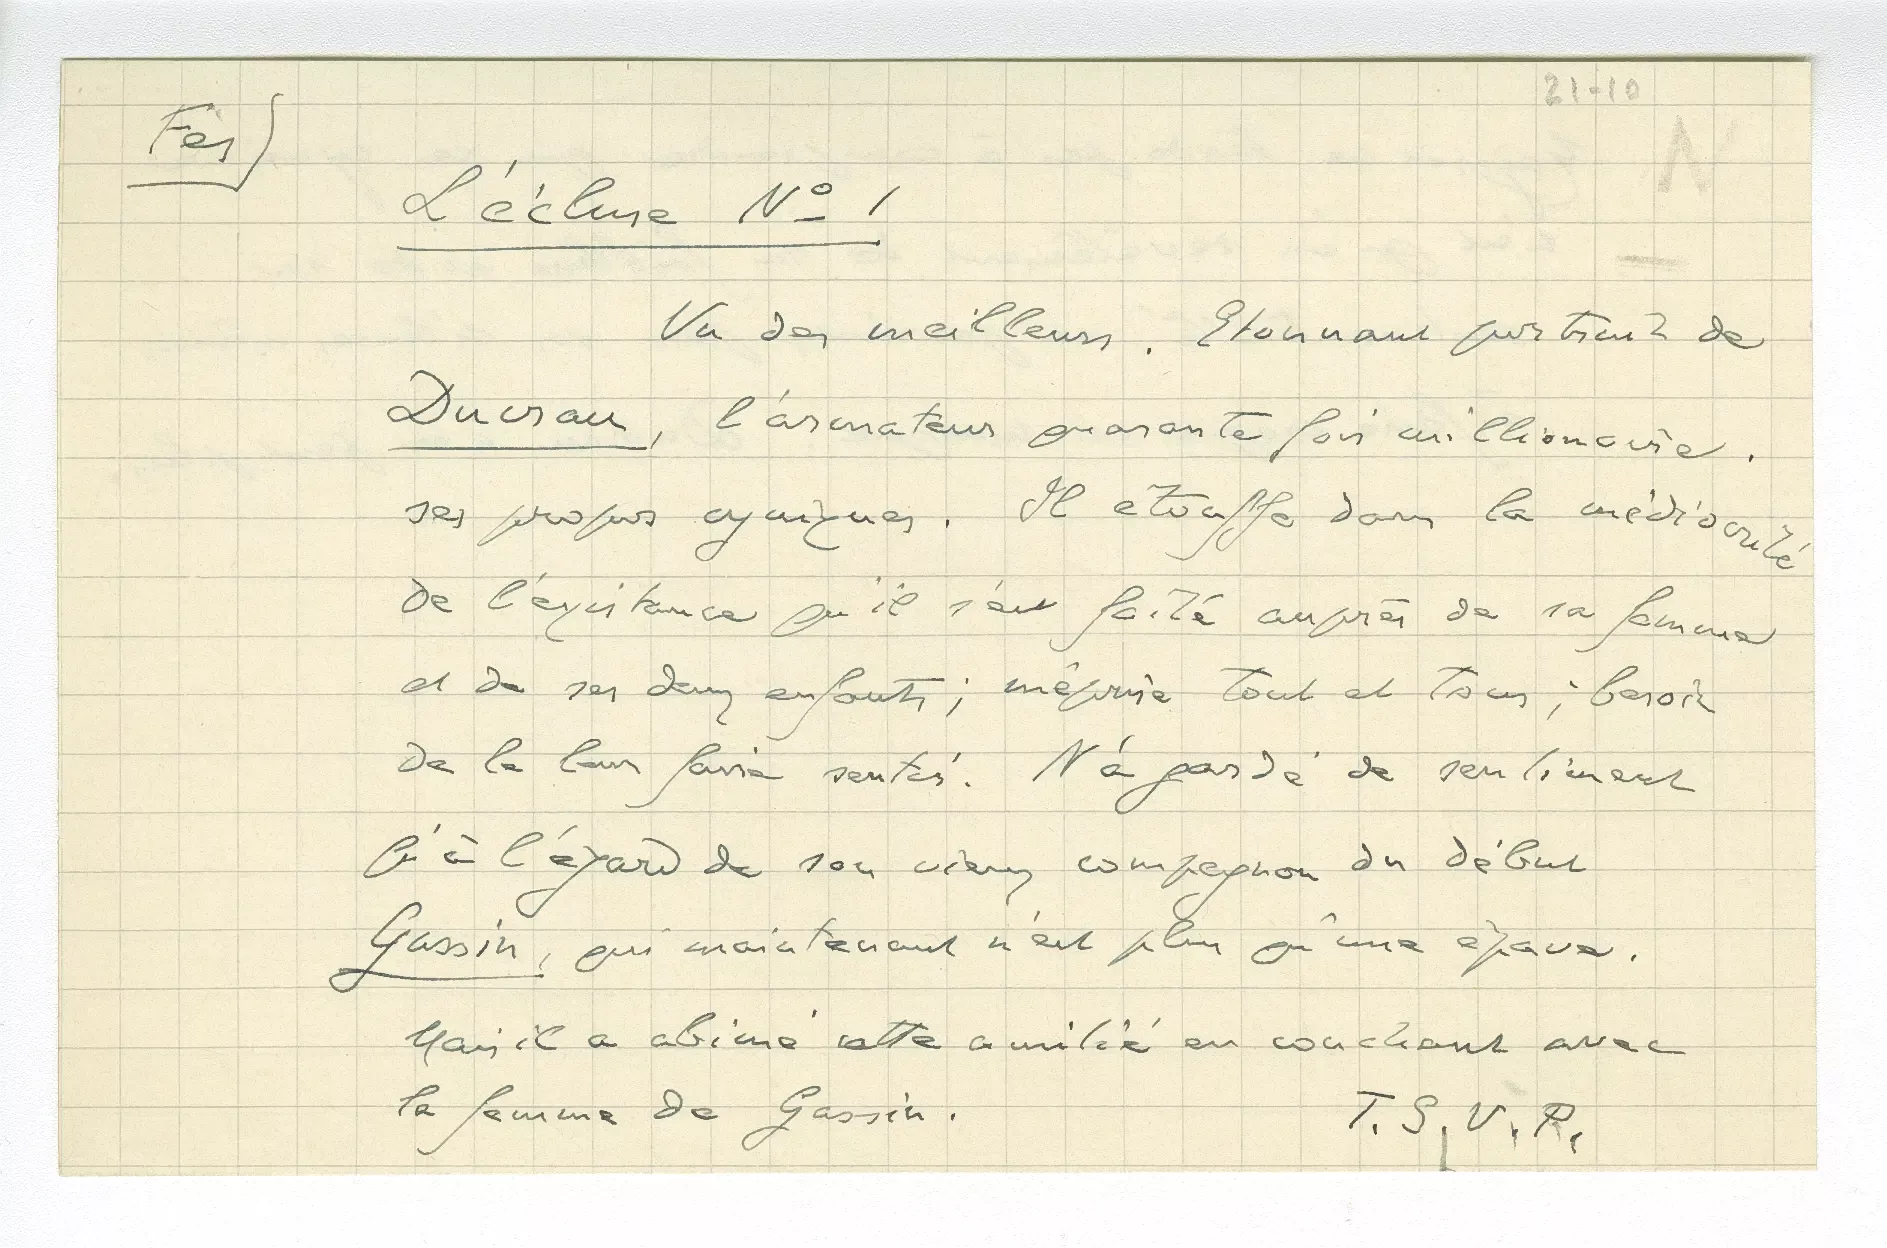 21-10
Fès
L'écluse Nº 1
Un des meilleurs. Etonnant portrait de
Ducrau, l'armateur quarante fois millionnaire.
ses propos cyniques. Il étouffe dans la médiocrité
de l'existence qu'il s'est faite auprès de sa femme
et de ses deux enfants; méprise tout et tous; besoin
de le leur faire sentir. N'a gardé de sentiment
qu'à l'égard de son vieux compagnon du début
Gassin, qui maintenant n'est plus qu'une épave.
Mais il a abimé cette amitié en couchant avec
la femme de Gassin.
T.S.V.P.